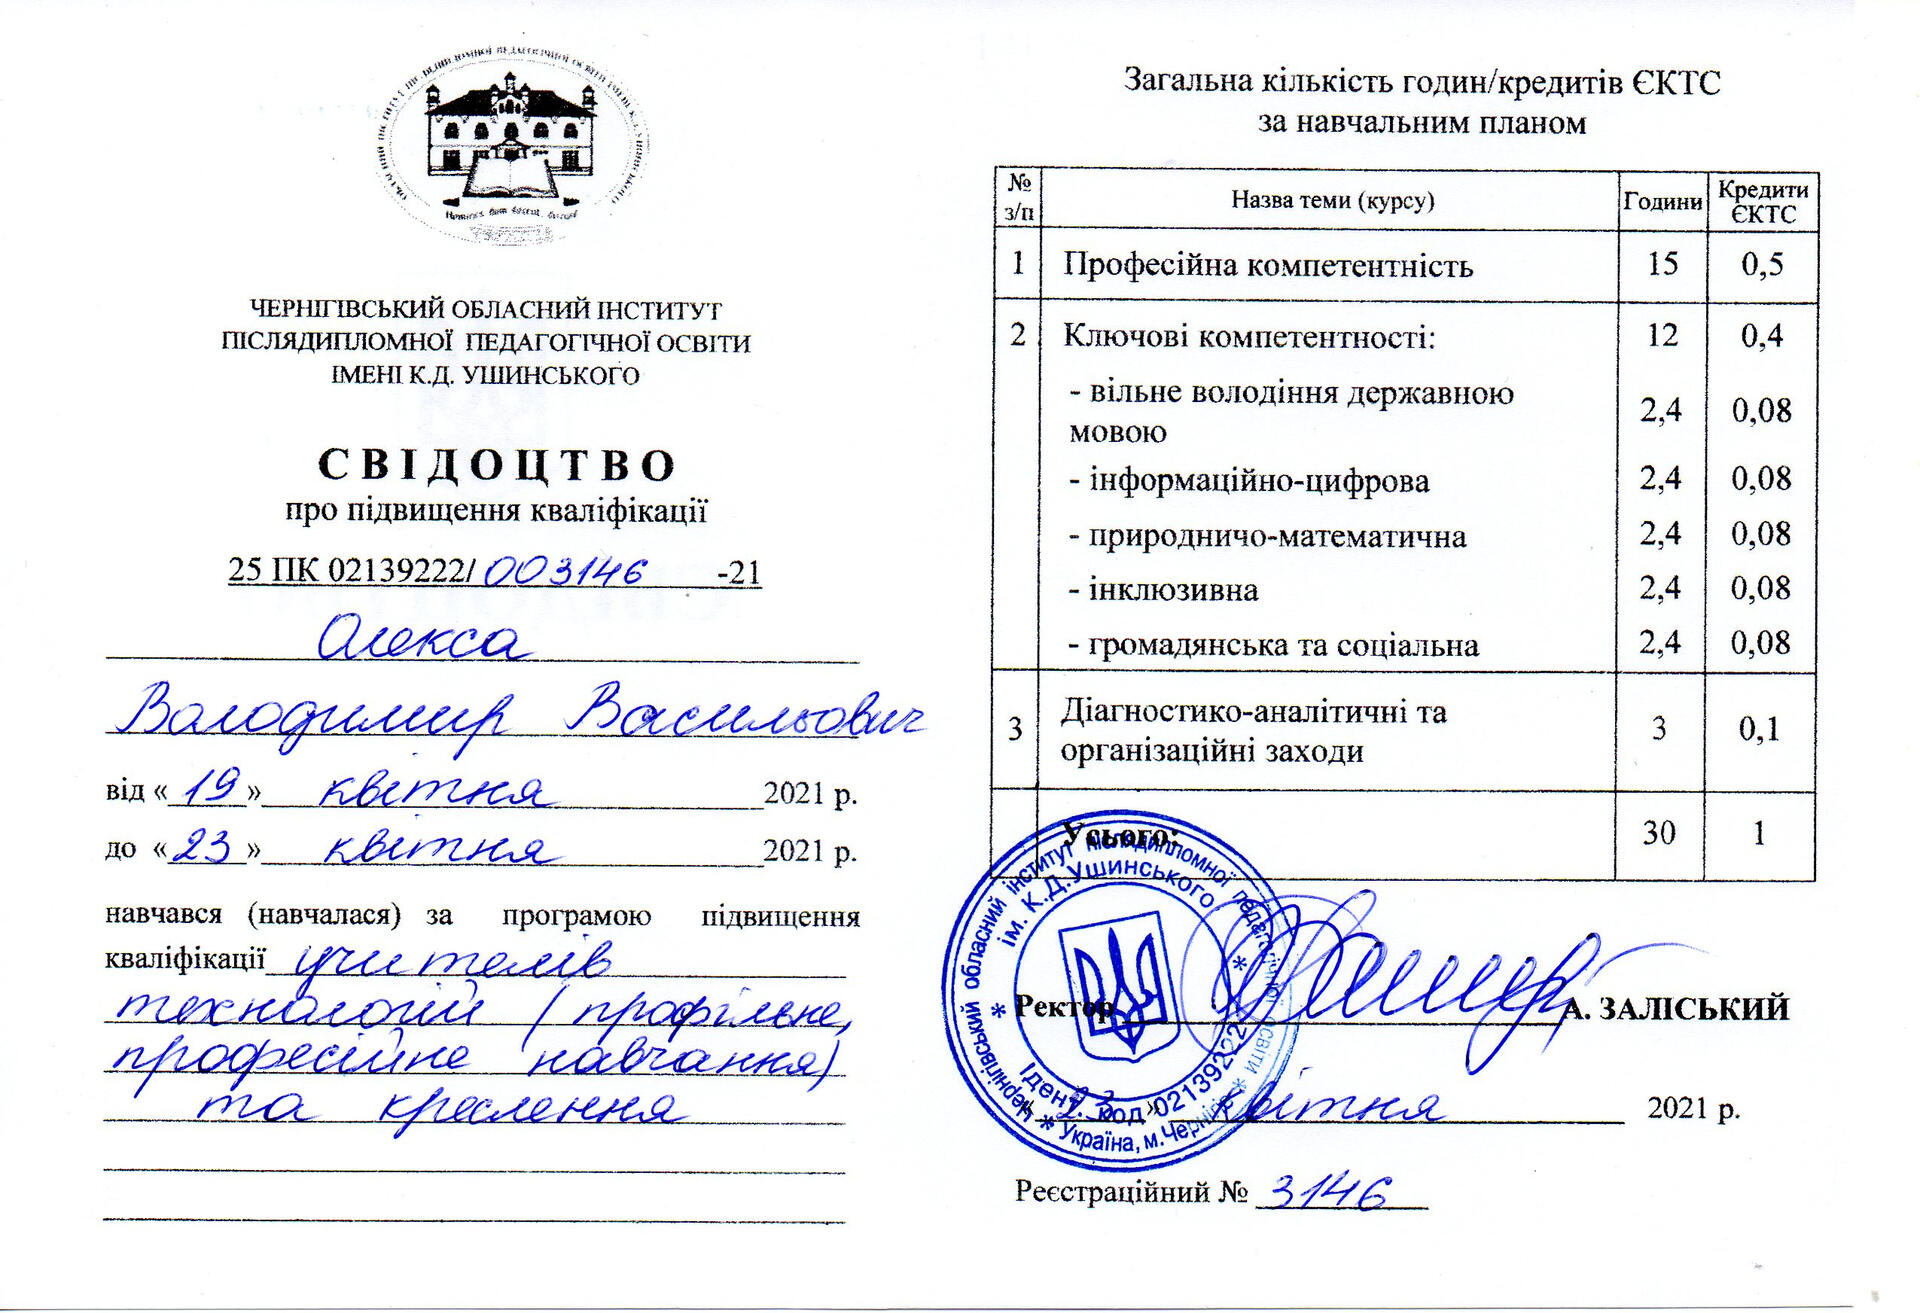 ЧЕРНІГІВСЬКИЙ ОБЛАСНИЙ ІНСТИТУТ
ПІСЛЯДИПЛОМНОЇ ПЕДАГОГІЧНОЇ ОСВІТИ
ІМЕНІ К.Д. УШИНСЬКОГО
СВІДОЦТВО
про підвищення кваліфікації
25 ПК 02139222/ 003146 -21
Олекса
Володимир Васильович
від « 19 » квітня 2021 р.
до « 23 » квітня 2021 р.
навчався (навчалася) за програмою підвищення
кваліфікації учителів
технологій (профільне,
професійне навчання)
та креслення
Загальна кількість годин/кредитів ЄКТС
за навчальним планом
№ з/п Назва теми (курсу) Години Кредити ЄКТС
1 Професійна компетентність 15 0,5
2 Ключові компетентності: 12 0,4
- вільне володіння державною
мовою 2,4 0,08
- інформаційно-цифрова 2,4 0,08
- природничо-математична 2,4 0,08
- інклюзивна 2,4 0,08
- громадянська та соціальна 2,4 0,08
3 Діагностико-аналітичні та
організаційні заходи 3 0,1
Усього: 30 1
Чернігівський обласний інститут післядипломної педагогічної освіти
ім. К.Д.Ушинського
Ідент. код 02139222
Україна, м.Чернігів
Ректор А. ЗАЛІСЬКИЙ
« 23 » квітня 2021 р.
Реєстраційний № 3146